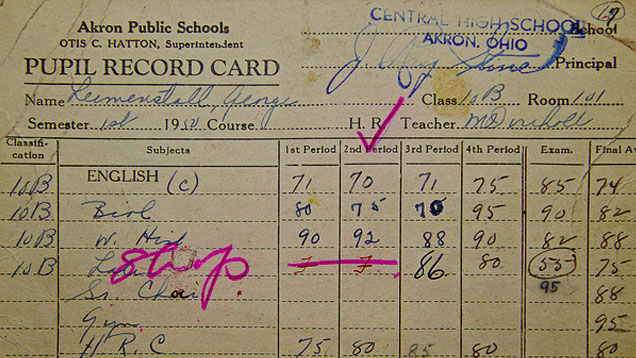 Akron Public Schools CENTRAL HIGH SCHOOL School 17
OTIS C. HATTON, Superintendent AKRON, OHIO
PUPIL RECORD CARD J. Ray Principal
Name George Class 10B Room 101
Semester 1st 1950 Course H. R. Teacher
Classifi-cation Subjects 1st Period 2nd Period 3rd Period 4th Period Exam. Final Av
10B ENGLISH (c) 71 70 71 75 85 74
10B Biol 80 75 70 95 90 82
10B W. Hist 90 92 88 90 82 88
10B Shop F F 86 80 55 75
Sr. Choir 95 88
Gym 95
H R C 75 80 85 80 80